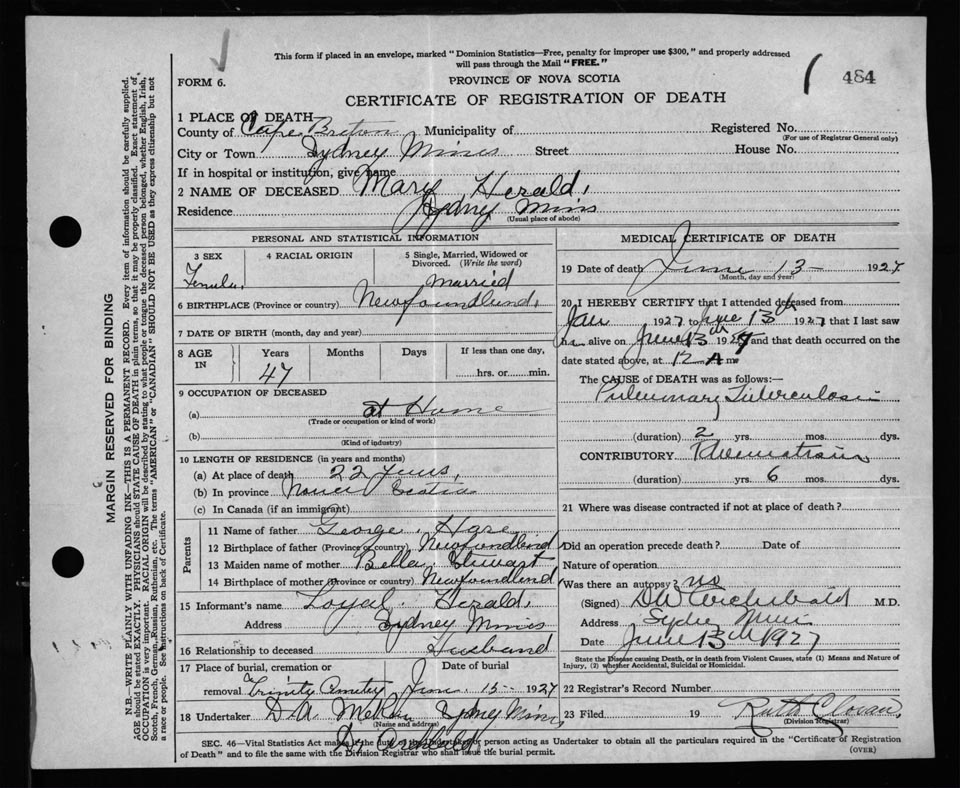 This form if placed in an envelope, marked "Dominion Statistics—Free, penalty for improper use $300," and properly addressed
will pass through the Mail "FREE."
FORM 6.
PROVINCE OF NOVA SCOTIA
484
CERTIFICATE OF REGISTRATION OF DEATH
1 PLACE OF DEATH
County of Cape Breton Municipality of Registered No.
(For use of Registrar General only)
City or Town Sydney Mines Street House No.
If in hospital or institution, give name
2 NAME OF DECEASED Mary Herald,
Residence Sydney Mines
(Usual place of abode)
PERSONAL AND STATISTICAL INFORMATION
3 SEX 4 RACIAL ORIGIN 5 Single, Married, Widowed or
Divorced. (Write the word)
Female, Married
6 BIRTHPLACE (Province or country) Newfoundland,
7 DATE OF BIRTH (month, day and year)
8 AGE IN Years Months Days If less than one day,
47 hrs. or min.
9 OCCUPATION OF DECEASED
(a) at Home
(Trade or occupation or kind of work)
(b)
(Kind of industry)
10 LENGTH OF RESIDENCE (in years and months)
(a) At place of death 22 years,
(b) In province Nova Scotia
(c) In Canada (if an immigrant)
Parents
11 Name of father George Hare
12 Birthplace of father (Province or country) Newfoundland
13 Maiden name of mother Bella Stewart
14 Birthplace of mother (Province or country) Newfoundland
15 Informant's name Loyal Herald,
Address Sydney Mines
16 Relationship to deceased Husband
17 Place of burial, cremation or Date of burial
removal Trinity Cemetry June 15 1927
18 Undertaker D. A. Sydney Mines
(Name and address)
MEDICAL CERTIFICATE OF DEATH
19 Date of death June 13 1927
(Month, day and year)
20 I HEREBY CERTIFY that I attended deceased from
Jan 1927 to June 13th 1927 that I last saw
h alive on June 13th 1927 and that death occurred on the
date stated above, at 12 A m
The CAUSE OF DEATH was as follows:—
Pulmonary Tuberculosis
(duration) 2 yrs. mos. dys.
CONTRIBUTORY Rheumatism
(duration) yrs. 6 mos. dys.
21 Where was disease contracted if not at place of death?
Did an operation precede death? Date of
Nature of operation
Was there an autopsy? no
(Signed) D W Archibald M D.
Address Sydney Mines
Date June 13th 1927
State the Disease causing Death, or in death from Violent Causes, state (1) Means and Nature of
Injury, (2) whether Accidental, Suicidal or Homicidal.
22 Registrar's Record Number
23 Filed 19 Ruth
(Division Registrar)
Dr Archibald
SEC. 46—Vital Statistics Act makes the duty of the Undertaker or person acting as Undertaker to obtain all the particulars required in the "Certificate of Registration
of Death" and to file the same with the Division Registrar who shall issue the burial permit.
(OVER)
MARGIN RESERVED FOR BINDING
N.B.—WRITE PLAINLY WITH UNFADING INK—THIS IS A PERMANENT RECORD. Every item of information should be carefully supplied.
AGE should be stated EXACTLY. PHYSICIANS should STATE CAUSE OF DEATH in plain terms, so that it may be properly classified. Exact statement of
OCCUPATION is very important. RACIAL ORIGIN will be described by stating to what people or tongue the deceased person belonged, whether English, Irish,
Scotch, French, German, Russian, Ruthenian, etc. The terms "AMERICAN" or "CANADIAN" SHOULD NOT BE USED as they express citizenship but not
a race or people. See instructions on back of Certificate.